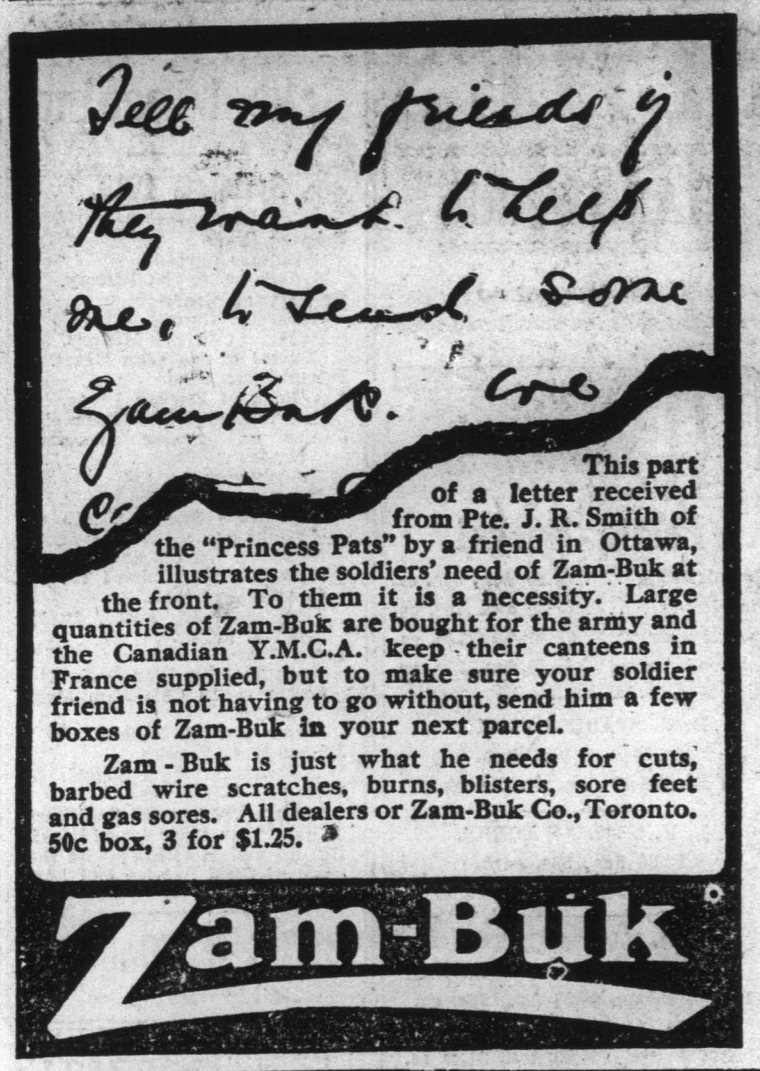 Tell my friends if
they want to help
me, to send some
Zam Buk. we
This part
of a letter received
from Pte. J. R. Smith of
the "Princess Pats" by a friend in Ottawa,
illustrates the soldiers' need of Zam-Buk at
the front. To them it is a necessity. Large
quantities of Zam-Buk are bought for the army and
the Canadian Y.M.C.A. keep their canteens in
France supplied, but to make sure your soldier
friend is not having to go without, send him a few
boxes of Zam-Buk in your next parcel.
Zam-Buk is just what he needs for cuts,
barbed wire scratches, burns, blisters, sore feet
and gas sores. All dealers or Zam-Buk Co., Toronto.
50c box, 3 for $1.25.
Zam-Buk